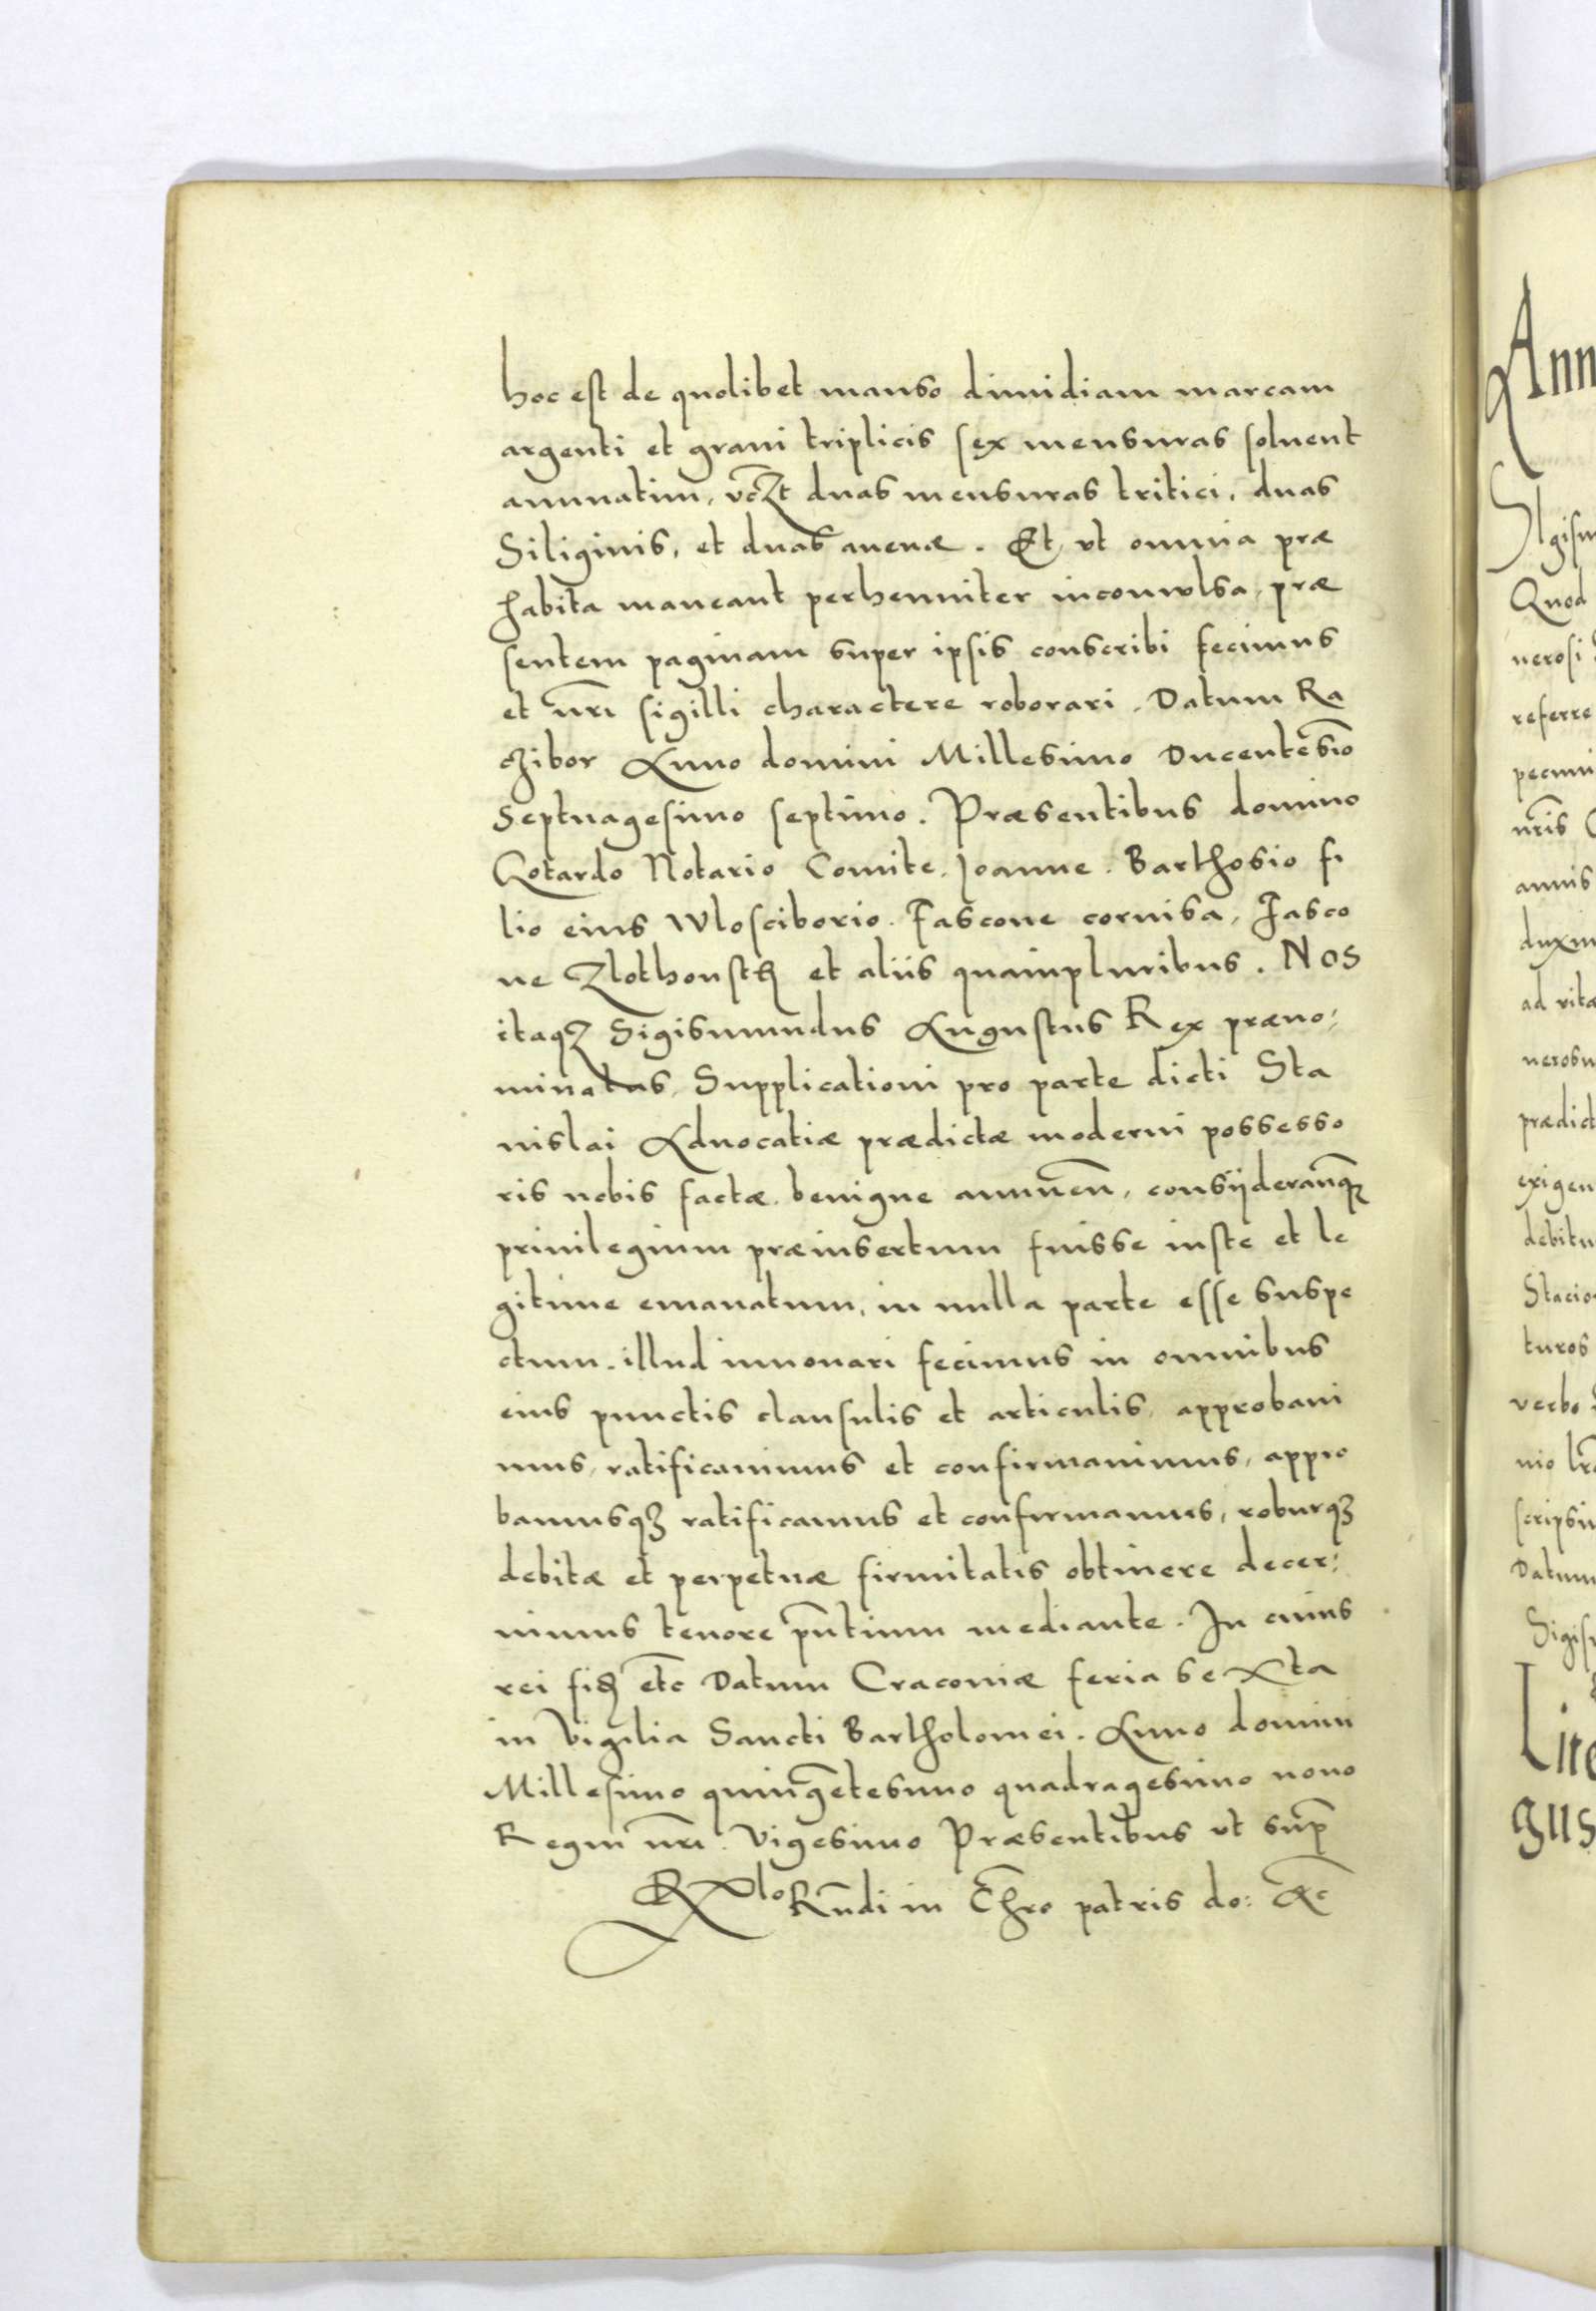 hoc est de quolibet manso dimidiam marcam
argenti et grani triplicis sex mensuras soluent
annuatim, vcꝫt duas mensuras tritici, duas
Siliginis, et duas auenæ. Et ut omnia præ
habita maneant perhenniter inconwlsa, præ
sentem paginam super ipsis conscribi fecimus
et nr̄i sigilli charactere roborari. Datum Ra
czibor Anno domini Millesimo Ducentesīo
Septuagesimo septimo. Præsentibus domino
Gotardo Notario Comite. Joanne. Barthosio fi
lio eius Wlosciborio. Fascone cornisa, Jasco
ne Zlothonsth et aliis quampluribus. NOS
itaqꝫ Sigismundus Augustus Rex præno:
minatus, Supplicationi pro parte dicti Sta
nislai Aduocatiæ prædictæ moderni possesso
ris nobis factæ benigne annuēn, consÿderan̄qꝫ
priuilegium præinsertum fuisse iuste et le
gitime emanatum, in nulla parte esse suspe
ctum. illud innouari fecimus in omnibus
eius punctis clausulis et articulis, approbaui
mus, ratificauimus et confirmauimus, appro
bamusqꝫ ratificamus et confirmamus, roburqꝫ
debitæ et perpetuæ firmitatis obtinere decer:
nimus tenore pn̄tium mediante. In cuius
rei fidꝫ etc̄ Datum Cracouiæ feria sexta
in Vigilia Sancti Bartholomei. Anno domini
Millesimo quingētesimo quadragesimo nono
Regni nr̄i. Vigesimo Præsentibus ut sup̄
Rx̄lo Rn̄di in Chr̄o patris do: &c̄
Ann
Quod
nerosi
referre
nr̄is
annis
ad vita
prædict
exigen
turos
verbo
Datum
gus